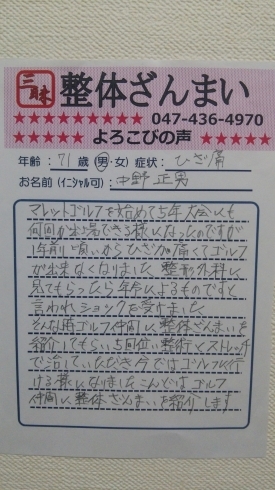 三昧
整体ざんまい
★★★★★★★★★★ 047-436-4970
★★★★★ よろこびの声 ★★★★★★
年齢：71 歳 (男・女) 症状：ひざ痛
お名前 (イニシャル可)：中野 正男
マレットゴルフを始めて5年大会にも
何回か出場できる様になったのですが
1年前頃からひざが痛くてゴルフ
が出来なくなりました 整形外科に
見てもらったら年令によるものですと
言われショックを受けました
そんな時ゴルフ仲間に整体ざんまいを
紹介してもらい5回位い整術とストレッチ
で治していただき今ではゴルフに行
ける様になりました こんどはゴルフ
仲間に整体ざんまいを紹介します